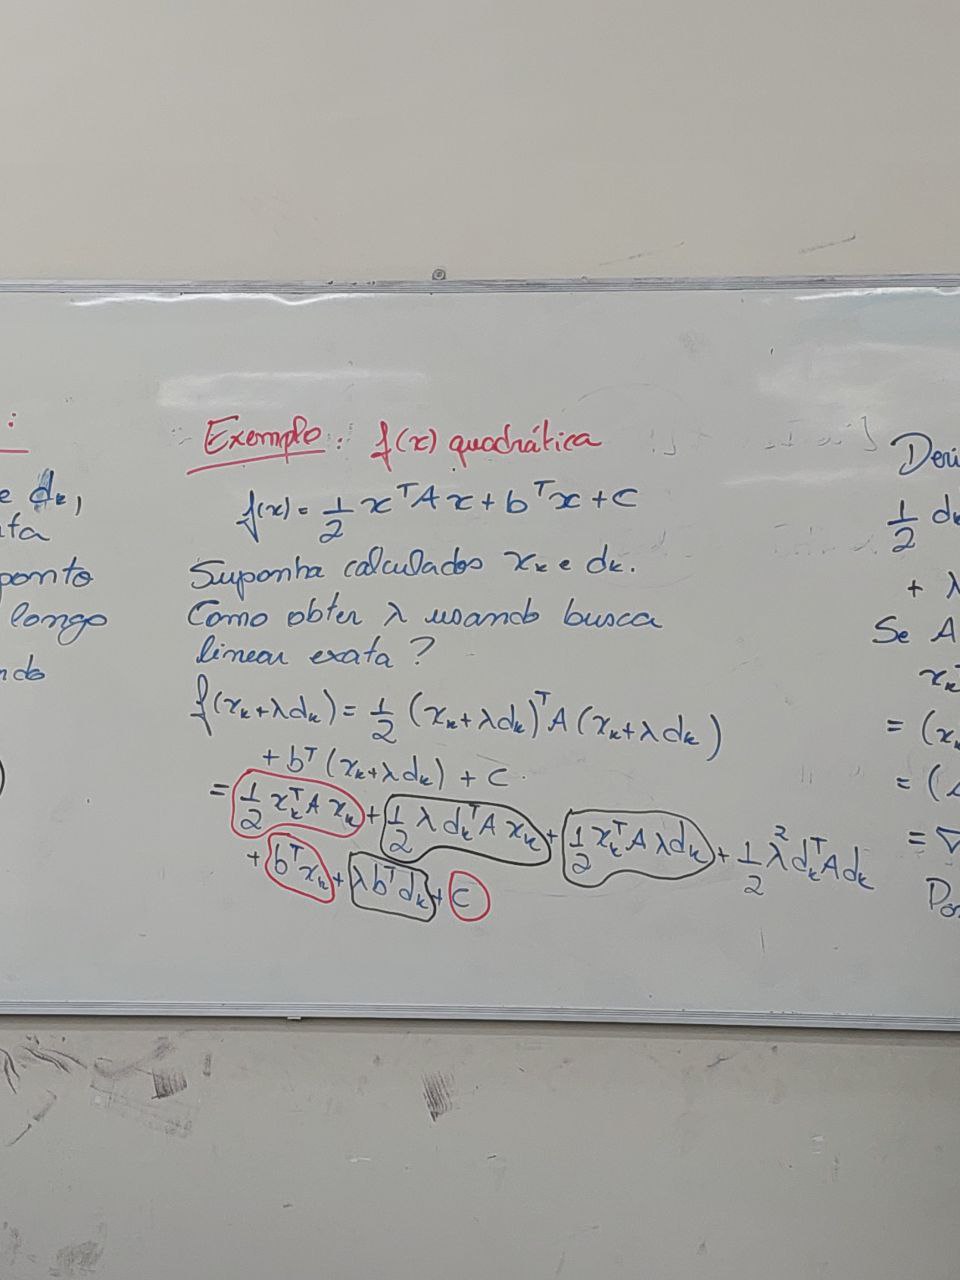 :
e dₖ,
ponto
longo
Exemplo: f(x) quadrática
f(x) = 1/2 xᵀA x + bᵀx + c
Suponha calculados xₖ e dₖ.
Como obter λ usando busca
linear exata ?
f(xₖ+λdₖ) = 1/2 (xₖ+λdₖ)ᵀA (xₖ+λdₖ)
+ bᵀ(xₖ+λdₖ) + c.
= 1/2 xₖᵀA xₖ + 1/2 λ dₖᵀA xₖ + 1/2 xₖᵀA λdₖ + 1/2 λ² dₖᵀA dₖ
+ bᵀxₖ + λbᵀdₖ + c
Deri
1/2 dₖ
+ λ
Se A
xₖᵀ
= (xₖ
= (
= ∇
Po